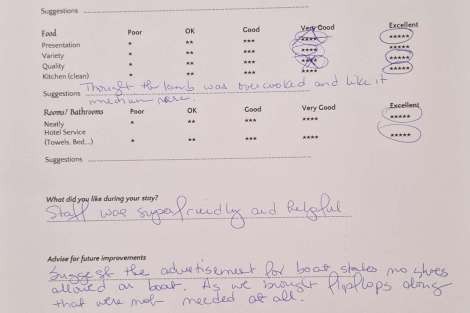 Suggestions
Food Poor OK Good Very Good Excellent
Presentation * ** *** **** *****
Variety * ** *** **** *****
Quality * ** *** **** *****
Kitchen (clean) * ** *** ****
Suggestions Thought the lamb was overcooked and like it
medium rare.
Rooms/ Bathrooms Poor OK Good Very Good Excellent
Neatly * ** *** **** *****
Hotel Service
(Towels, Bed,..) * ** *** **** *****
Suggestions
What did you like during your stay?
Staff was superfriendly and helpful
Advise for future improvements
Suggest the advertisement for boat states no shoes
allowed on boat. As we brought flipflops along
that were not needed at all.